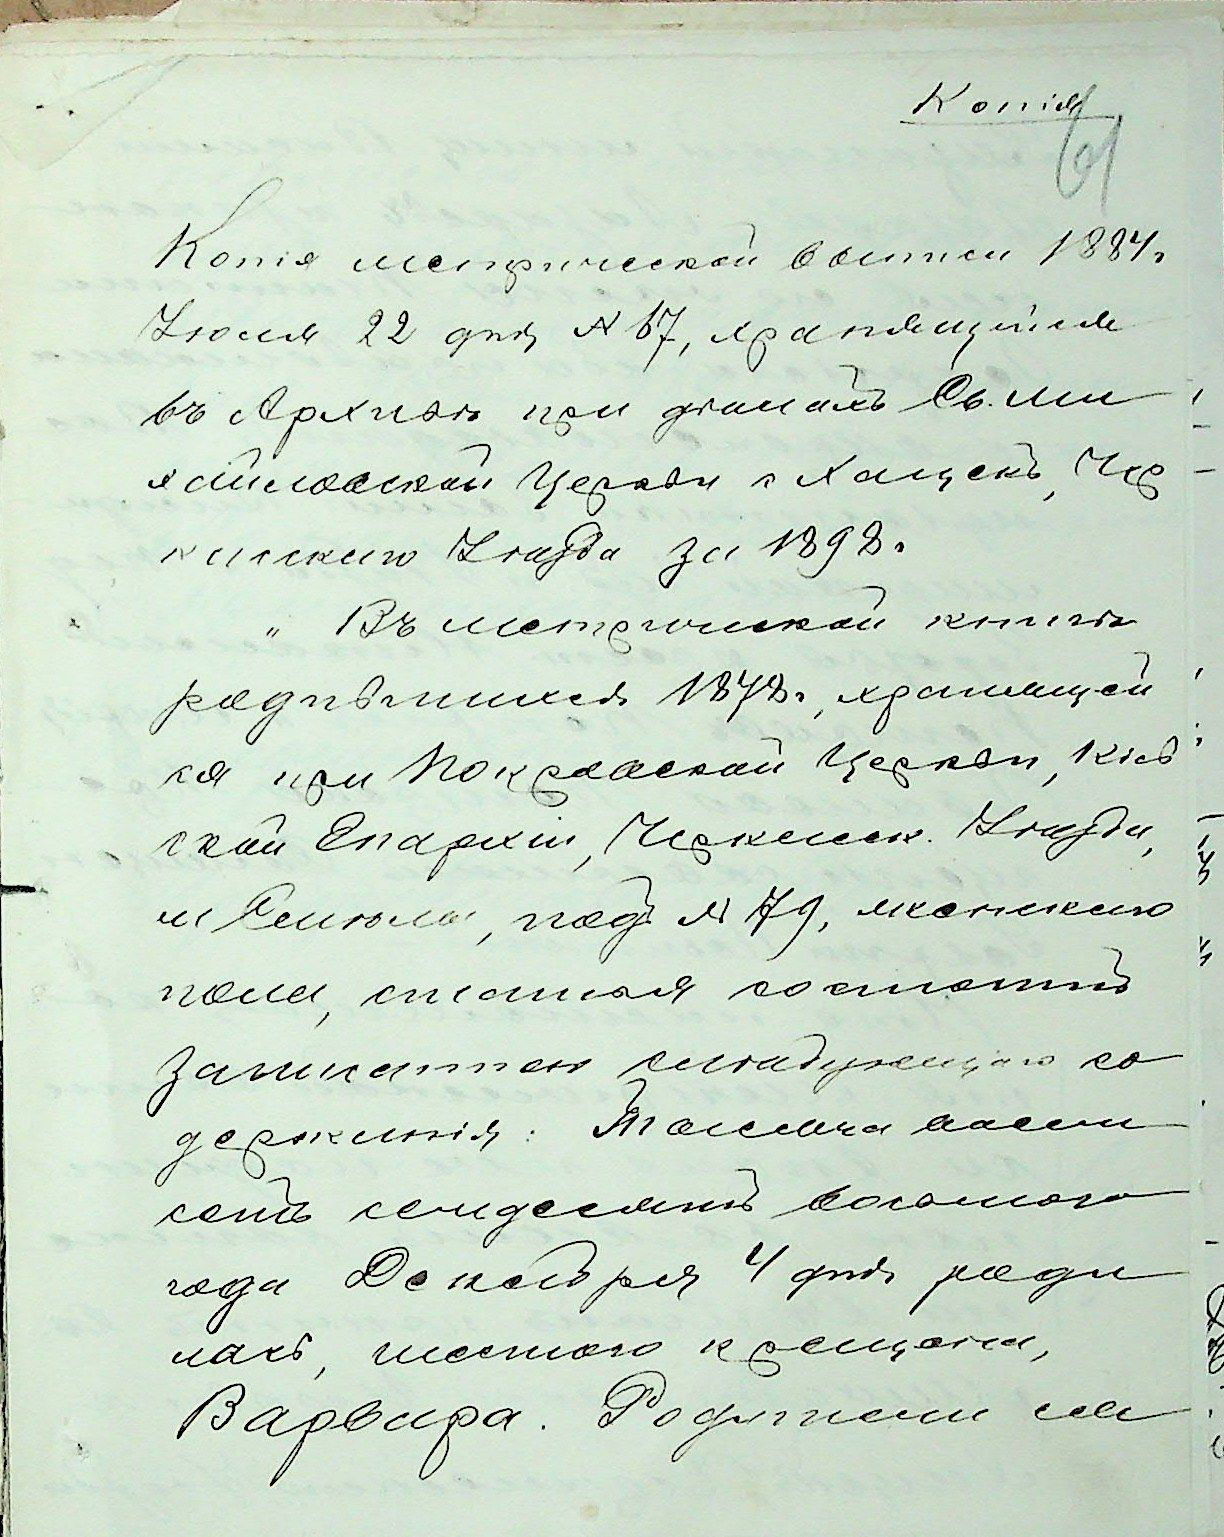 Копія
61
Копія метрической выписи 1884 г
Іюля 22 дня № 67, хранящийся
въ Архивѣ при дѣлахъ Св. Ми
хайловской Церкви с Хацекъ, Чер
касскаго Уѣзда за 1898 г
" Въ метрической книгѣ
родившихся 1878 г, хранящей
ся при Покровской Церкви, Кіев
ской Епархіи, Черкасск. Уѣзда,
м Смѣлы, подъ № 79, женскаго
пола, статья состоитъ
записанною слѣдующаго со
держанія: Тысяча восем
сотъ семдесятъ восьмого
года Декабря 4 дня роди
лась, шестого крещена,
Варвара. Родители ея